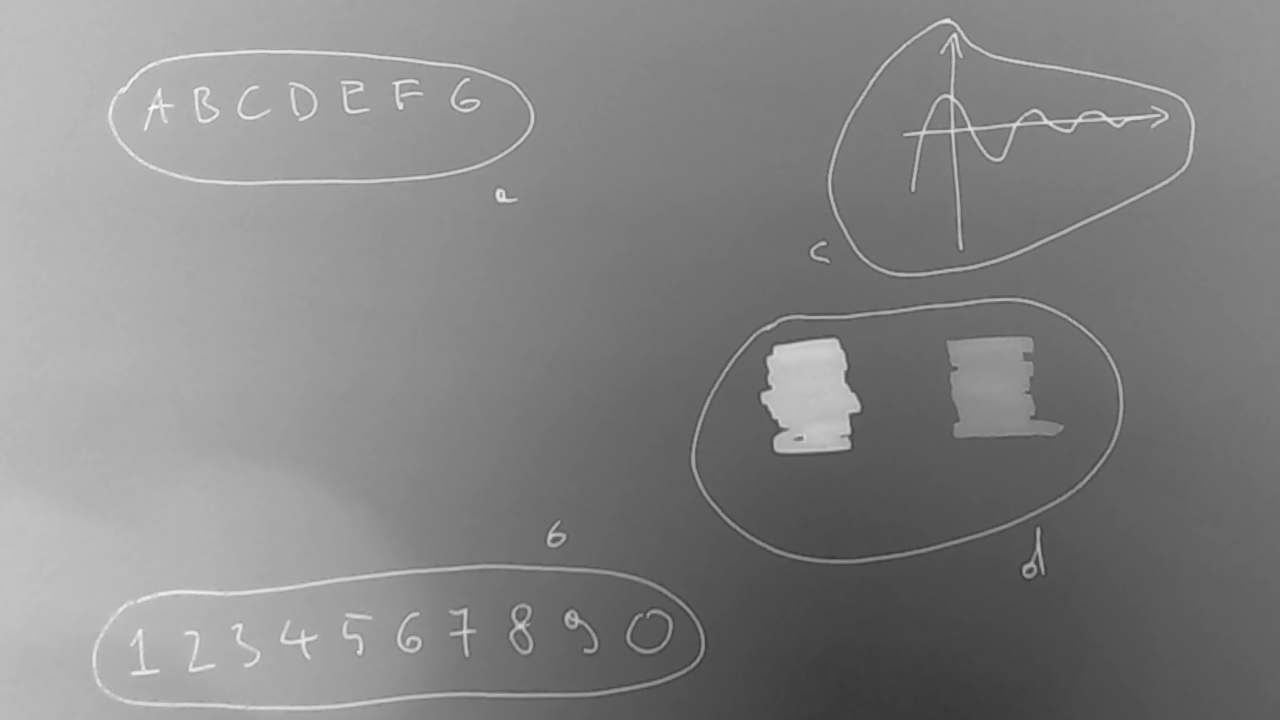 A B C D E F G
a
c
d
б
1 2 3 4 5 6 7 8 9 0